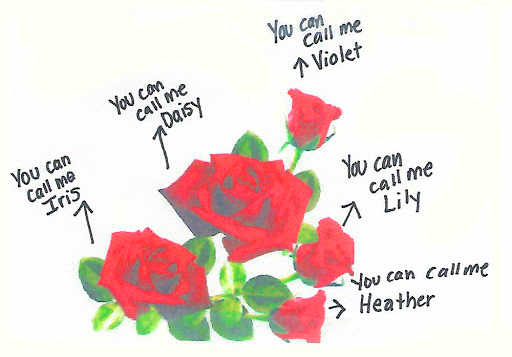 You can
call me
Violet
You can
call me
Daisy
You can
call me
Iris
You can
call me
Lily
You can call me
Heather